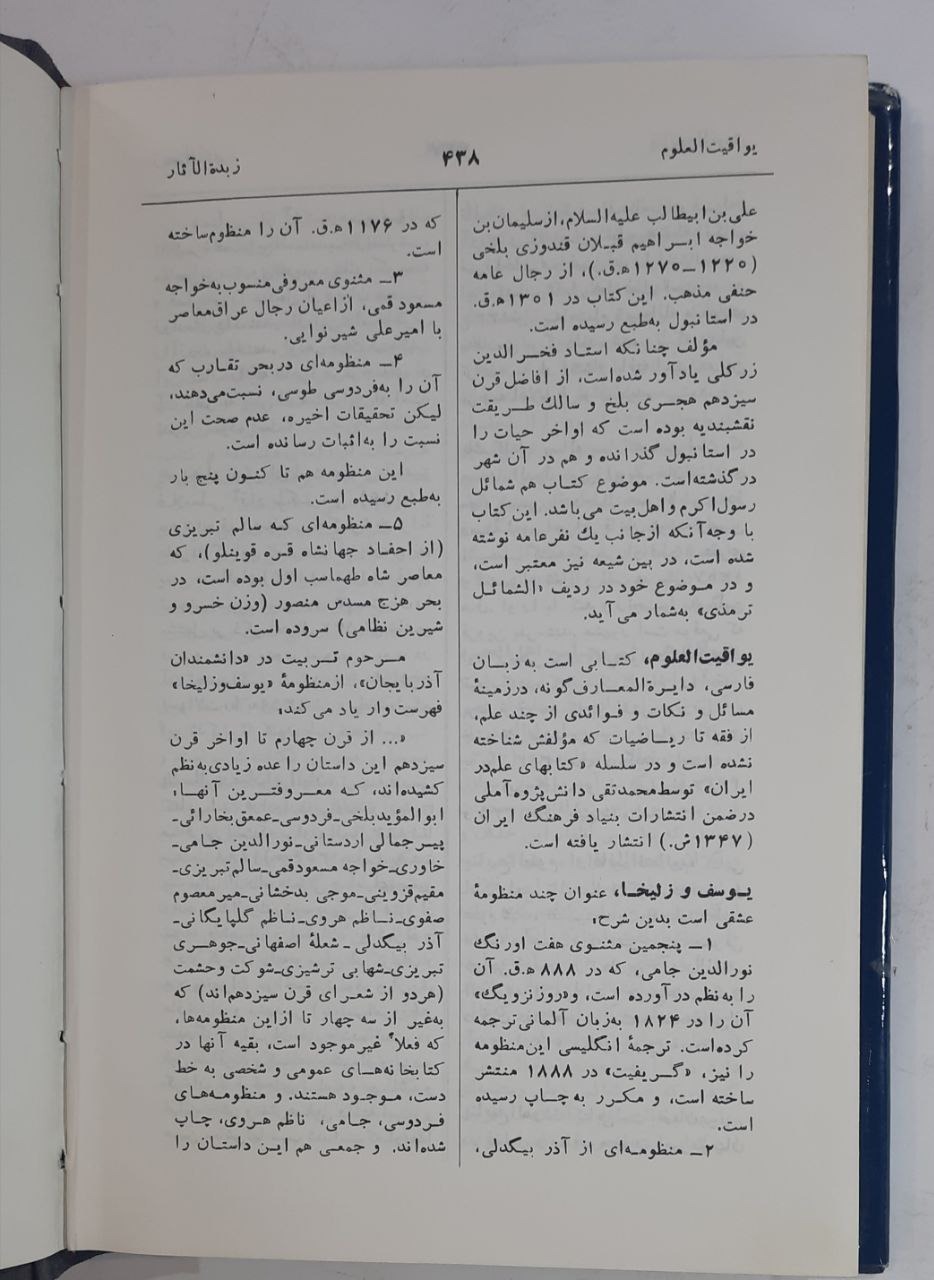 یواقیت‌العلوم
۴۳۸
زبدة‌الآثار
علی‌بن‌ابیطالب علیه‌السلام، از سلیمان‌بن
خواجه ابراهیم قبلان قندوزی بلخی
(۱۲۲۰–۱۲۷۰ه‍.ق.)، از رجال عامه
حنفی مذهب. این‌کتاب در ۱۳۰۱ه‍.ق.
در استانبول به‌طبع رسیده است.
مؤلف چنانکه استاد فخرالدین
زرکلی یادآور شده‌است، از افاضل قرن
سیزدهم هجری بلخ و سالك طریقت
نقشبندیه بوده است که اواخر حیات را
در استانبول گذرانده و هم در آن شهر
درگذشته‌است. موضوع کتاب هم شمائل
رسول‌اکرم و اهل‌بیت می‌باشد. این‌کتاب
با وجه‌آنکه ازجانب یك نفرعامه نوشته
شده است، در بین شیعه نیز معتبر است،
و در موضوع خود در ردیف «الشمائل
ترمذی» به‌شمار می‌آید.
یواقیت‌العلوم، کتابی است به‌زبان
فارسی، دایرة‌المعارف‌گونه، درزمینهٔ
مسائل و نکات و فوائدی از چند علم،
از فقه تا ریاضیات که مؤلفش شناخته
نشده است و در سلسله «کتابهای علم‌در
ایران» توسط‌محمدتقی دانش‌پژوه‌آملی
درضمن انتشارات بنیاد فرهنگ ایران
(۱۳۴۷ش.) انتشار یافته است.
یوسف و زلیخا، عنوان چند منظومهٔ
عشقی است بدین شرح:
۱– پنجمین مثنوی هفت اورنگ
نورالدین جامی، که در ۸۸۸ ه‍.ق. آن
را به‌نظم درآورده است، و«روزنزویگ»
آن را در ۱۸۲۴ به‌زبان آلمانی‌ترجمه
کرده‌است. ترجمهٔ انگلیسی این‌منظومه
را نیز، «گریفیت» در ۱۸۸۸ منتشر
ساخته است، و مکرر به‌چاپ رسیده
است.
۲– منظومه‌ای از آذر بیگدلی،
که در ۱۱۷۶ ه‍.ق. آن را منظوم‌ساخته
است.
۳– مثنوی معروفی‌منسوب‌به‌خواجه
مسعود قمی، ازاعیان رجال عراق‌معاصر
با امیرعلی شیرنوایی.
۴– منظومه‌ای دربحر تقارب که
آن را به‌فردوسی طوسی، نسبت‌می‌دهند،
لیکن تحقیقات اخیره، عدم صحت این
نسبت را به‌اثبات رسانده است.
این منظومه هم تا کنون پنج بار
به‌طبع رسیده است.
۵– منظومه‌ای که سالم تبریزی
(از احفاد جهانشاه قره قوینلو)، که
معاصر شاه طهماسب اول بوده است، در
بحر هزج مسدس منصور (وزن خسرو و
شیرین نظامی) سروده است.
مرحوم تربیت در «دانشمندان
آذربایجان»، ازمنظومهٔ «یوسف‌وزلیخا»
فهرست‌وار یاد می‌کند:
«... از قرن چهارم تا اواخر قرن
سیزدهم این داستان را عده زیادی‌به‌نظم
کشیده‌اند، که معروفترین آنها:
ابوالمؤیدبلخی–فردوسی–عمعق‌بخارائی–
پیرجمالی اردستانی–نورالدین جامی–
خاوری–خواجه مسعودقمی–سالم‌تبریزی–
مقیم‌قزوینی–موجی بدخشانی–میرمعصوم
صفوی–ناظم هروی–ناظم گلپایگانی–
آذر بیگدلی–شعلهٔ اصفهانی–جوهری
تبریزی–شهابی ترشیزی–شوکت وحشمت
(هردو از شعرای قرن سیزدهم‌اند) که
به‌غیر از سه چهار تا ازاین منظومه‌ها،
که فعلاً غیرموجود است، بقیه آنها در
کتابخانه‌های عمومی و شخصی به خط
دست، موجود هستند. و منظومه‌های
فردوسی، جامی، ناظم هروی، چاپ
شده‌اند. و جمعی هم این داستان را